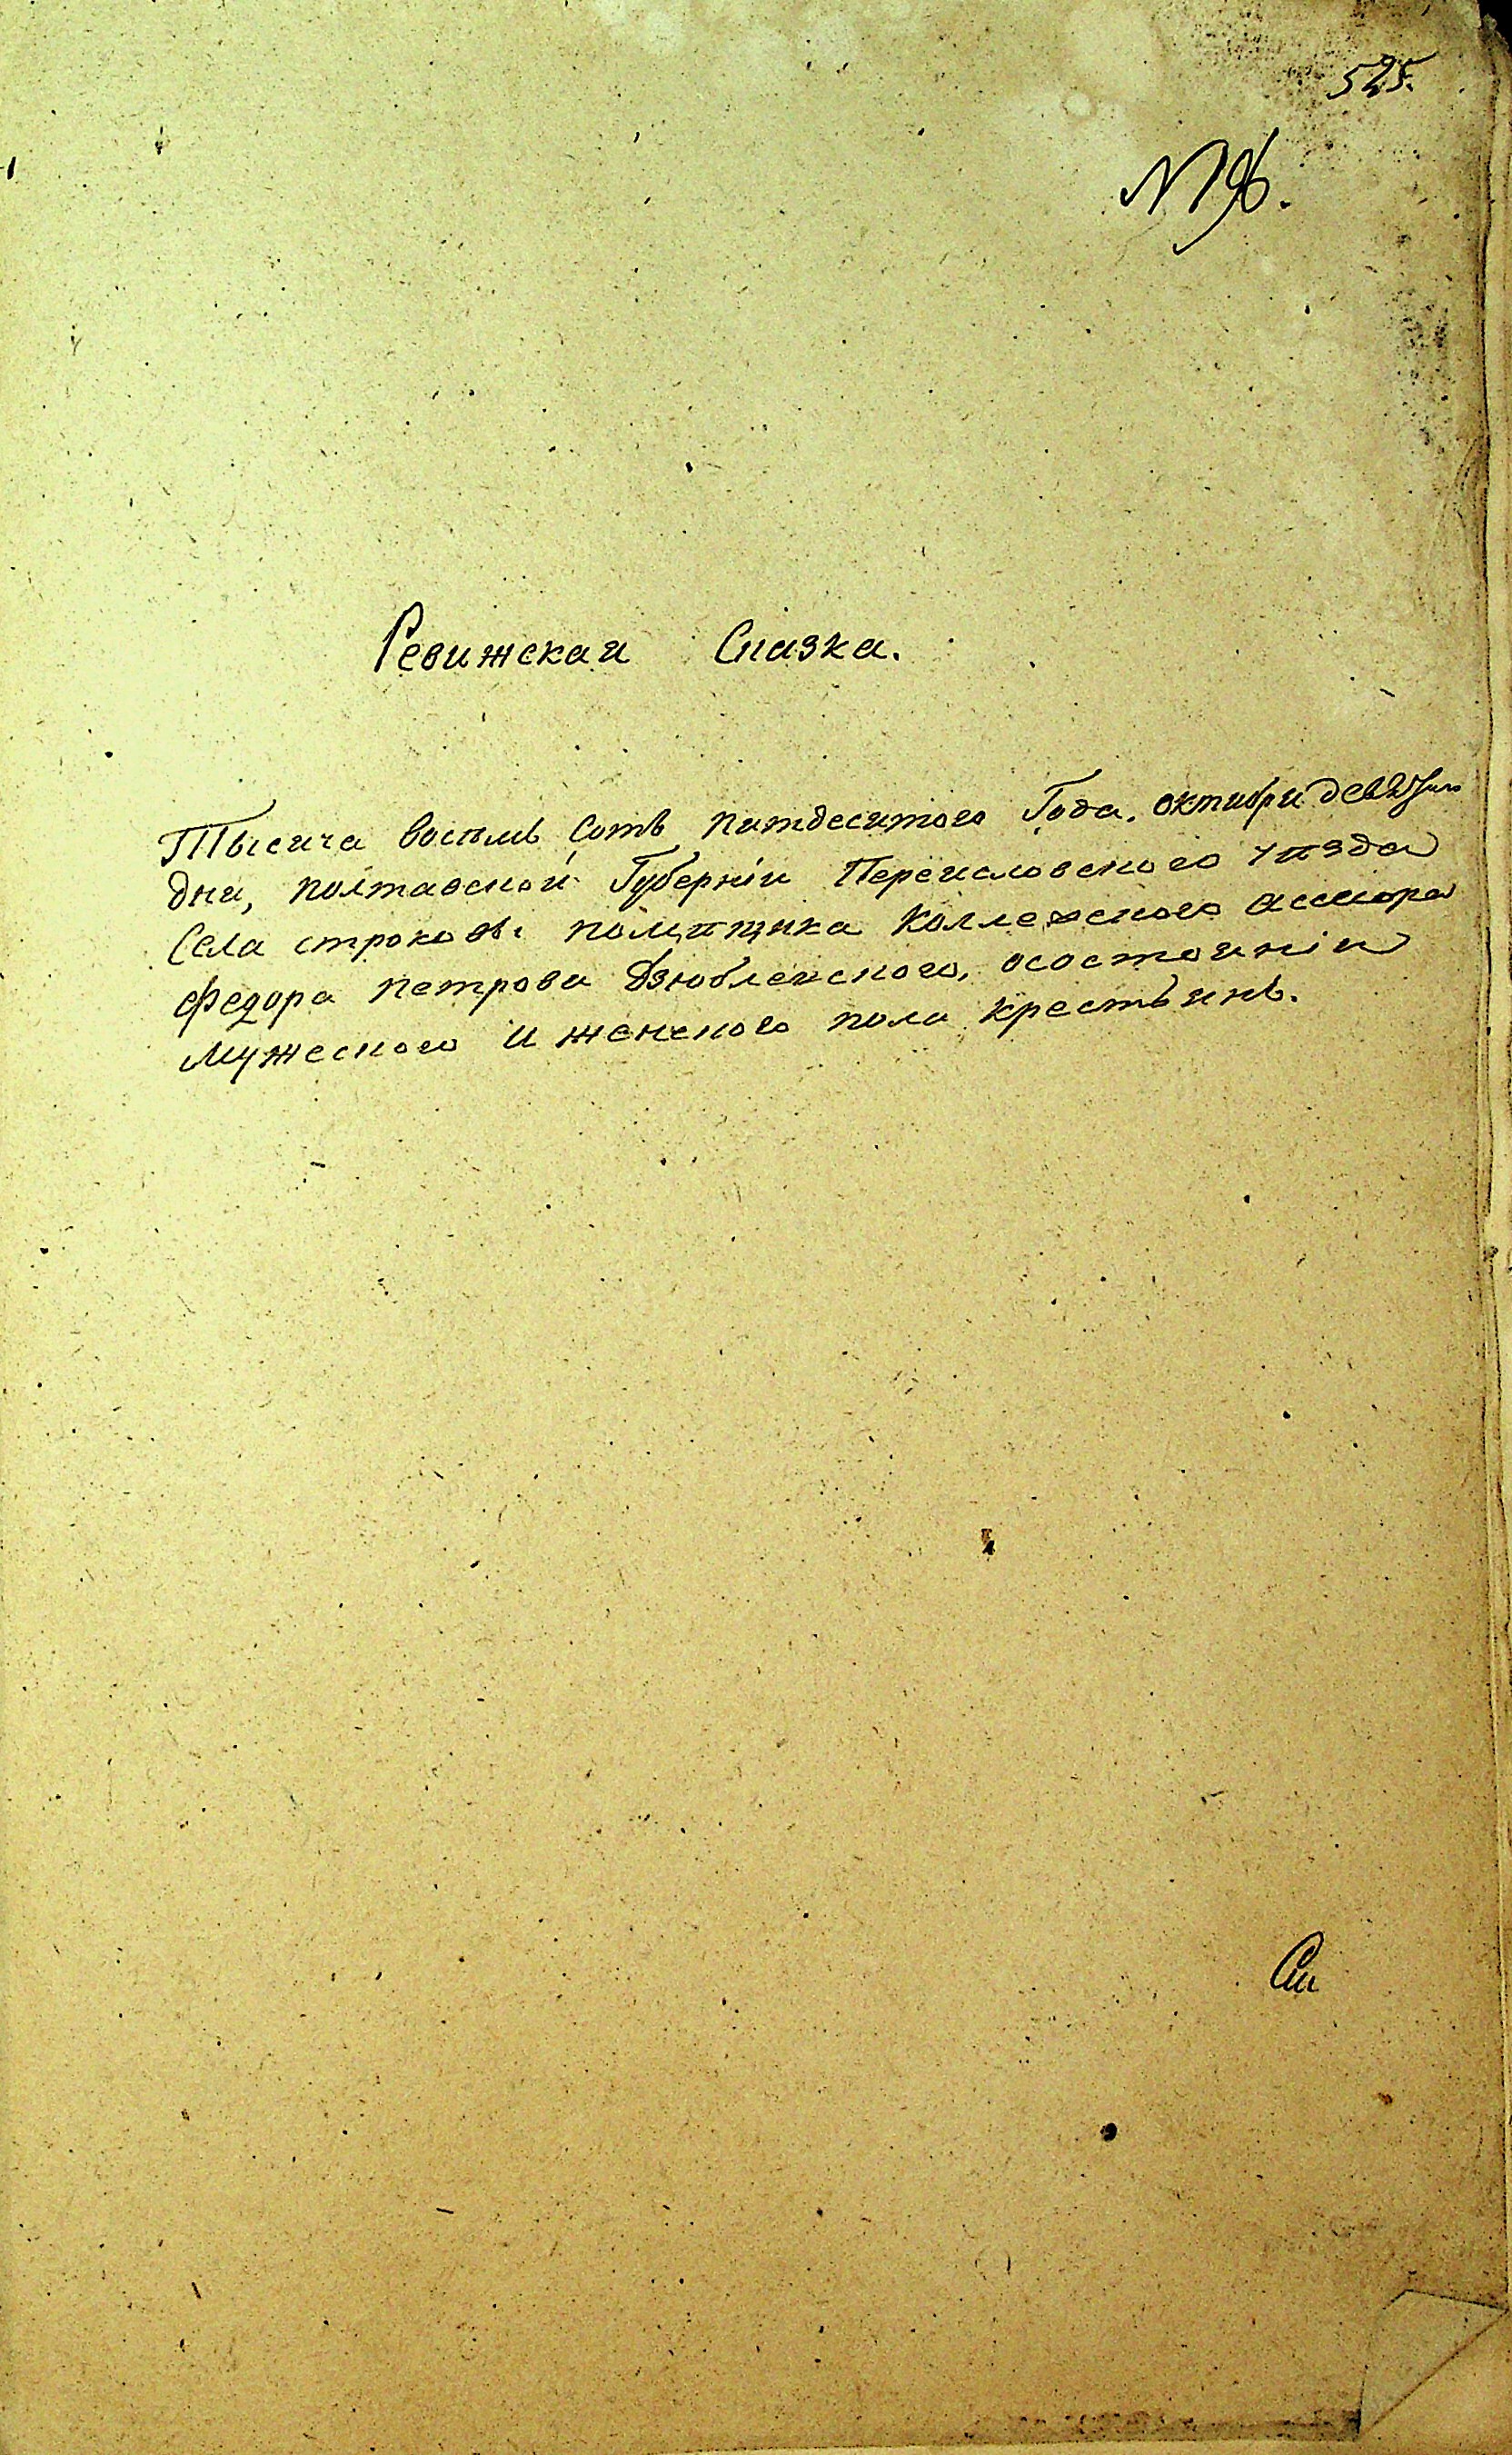 525.
№ 96.
Ревижская Сказка.
Тысяча восемь Сотъ пятдесятого Года. октября
дня, полтавской Губерніи Переясловского уѣзда
Села строковъ помѣщика Коллежского
Федора петрова осостояніи
мужеского и женского пола крестьянъ.